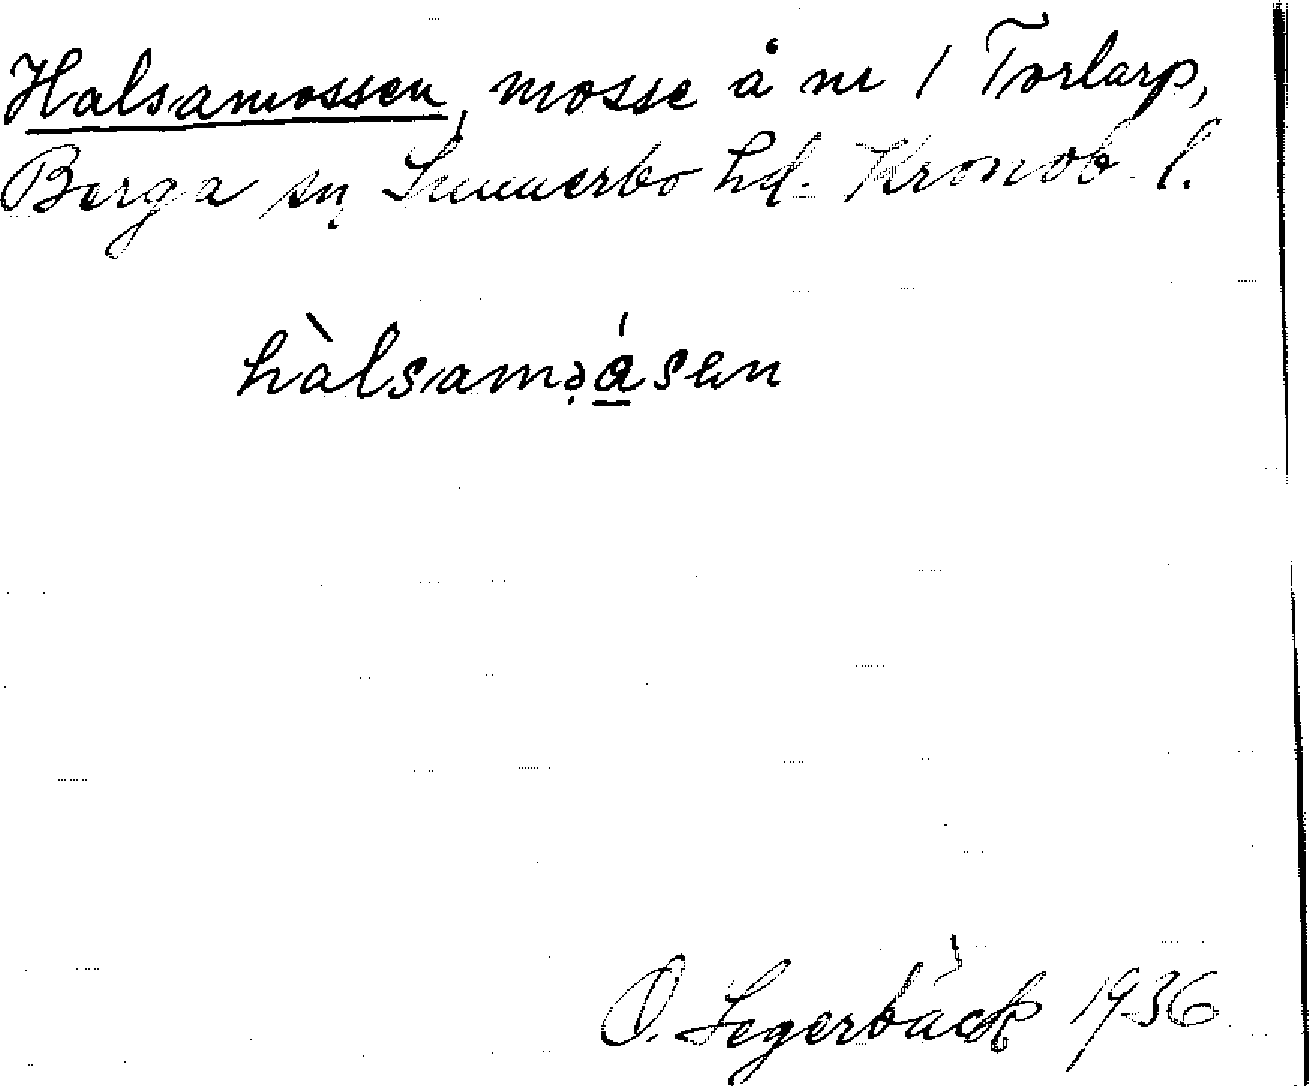 Halsamossen, mosse å nr 1 Torlarp,
Berga sn Sunnerbo hd. Kronob. l.
hàlsamạásen
O. Segerbäck 1936